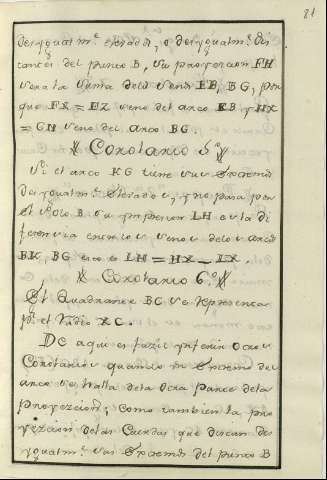 81
desygualm.e elevados, o desygualm.e dis
tantes del punto B, su proyeccion FH
sera la suma delos senos EB, BG, por
que FX = EZ seno del arco EB y HX
= GN seno del arco BG.
Corolario 5.º
Si el arco KG tiene sus extremos
desygualm.e elevados, y no pasa por
el Polo B su proyeccion LH es la di
ferencia entre los senos delos arcos
BK, BG esto es LH = HX — LX.
Corolario 6.º
El Quadrante BC se representa
p.r el radio XC.
De aqui es facil ynferir otros
Corolarios quando un extremo del
arco se halla dela otra parte dela
proyeccion; como tambien la pro
yeccion delas Cuerdas que distan de
sygualm.e sus extremos del punto B